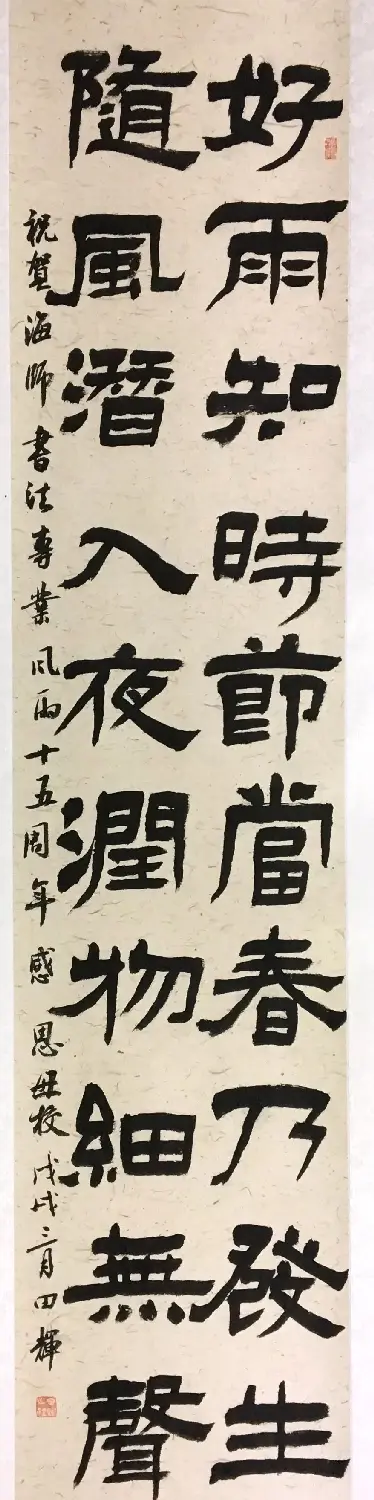 好雨知時節當春乃發生
隨風潛入夜潤物細無聲
祝賀海師書法專業風雨十五周年感恩母校戊戌三月田輝